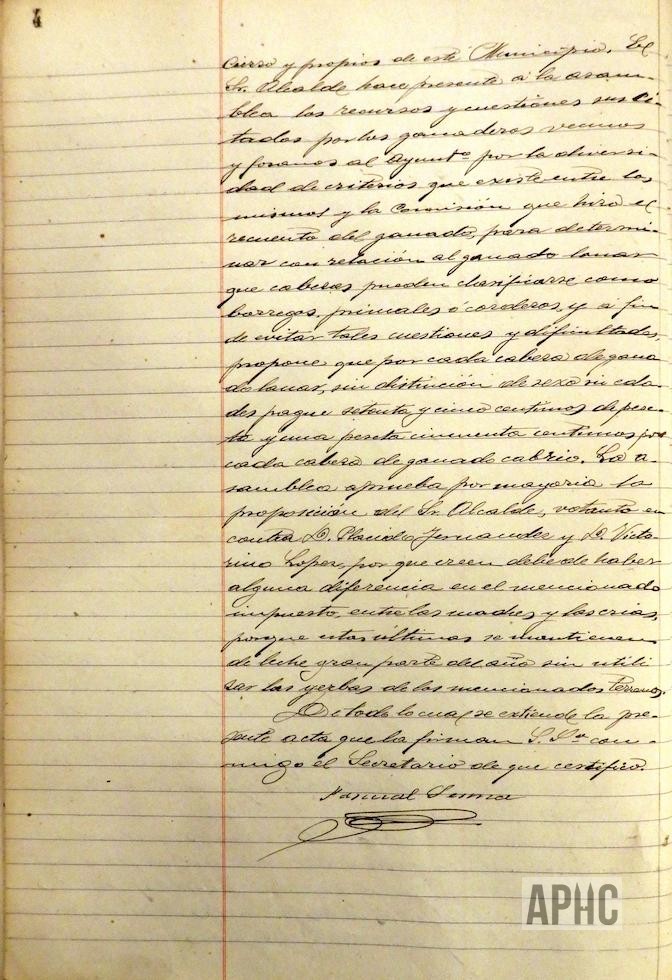 4
cierro y propios de este Municipio. El
Sr. Alcalde hace presente á la asam-
blea los recursos y cuestiones susci-
tados por los ganaderos vecinos
y foranos al Ayuntº por la diversi-
dad de criterios que existe entre los
mismos y la Comisión que hizo el
recuento del ganado, para determi-
nar con relación al ganado lanar
que cabezas pueden clasificarse como
borregos, primales ó corderos, y a fin
de evitar tales cuestiones y dificultades,
propone que por cada cabeza de gana
do lanar, sin distinción de sexo ni eda-
des pague setenta y cinco centimos de pese-
ta y una peseta cincuenta centimos por
cada cabeza de ganado cabrio. La a-
samblea aprueba por mayoria la
proposición del Sr. Alcalde, votando en
contra D. Placido Fernandez y D. Victo-
rino Lopez, por que creen debe de haber
alguna diferencia en el mencionado
impuesto, entre las madres y las crias,
porque estas últimas se mantienen
de leche gran parte del año sin utili
zar las yerbas de los mencionados terrenos.
De todo lo cual se extiende la pre-
sente acta que la firman S. Sª con-
migo el Secretario de que certifico.
Pascual
APHC